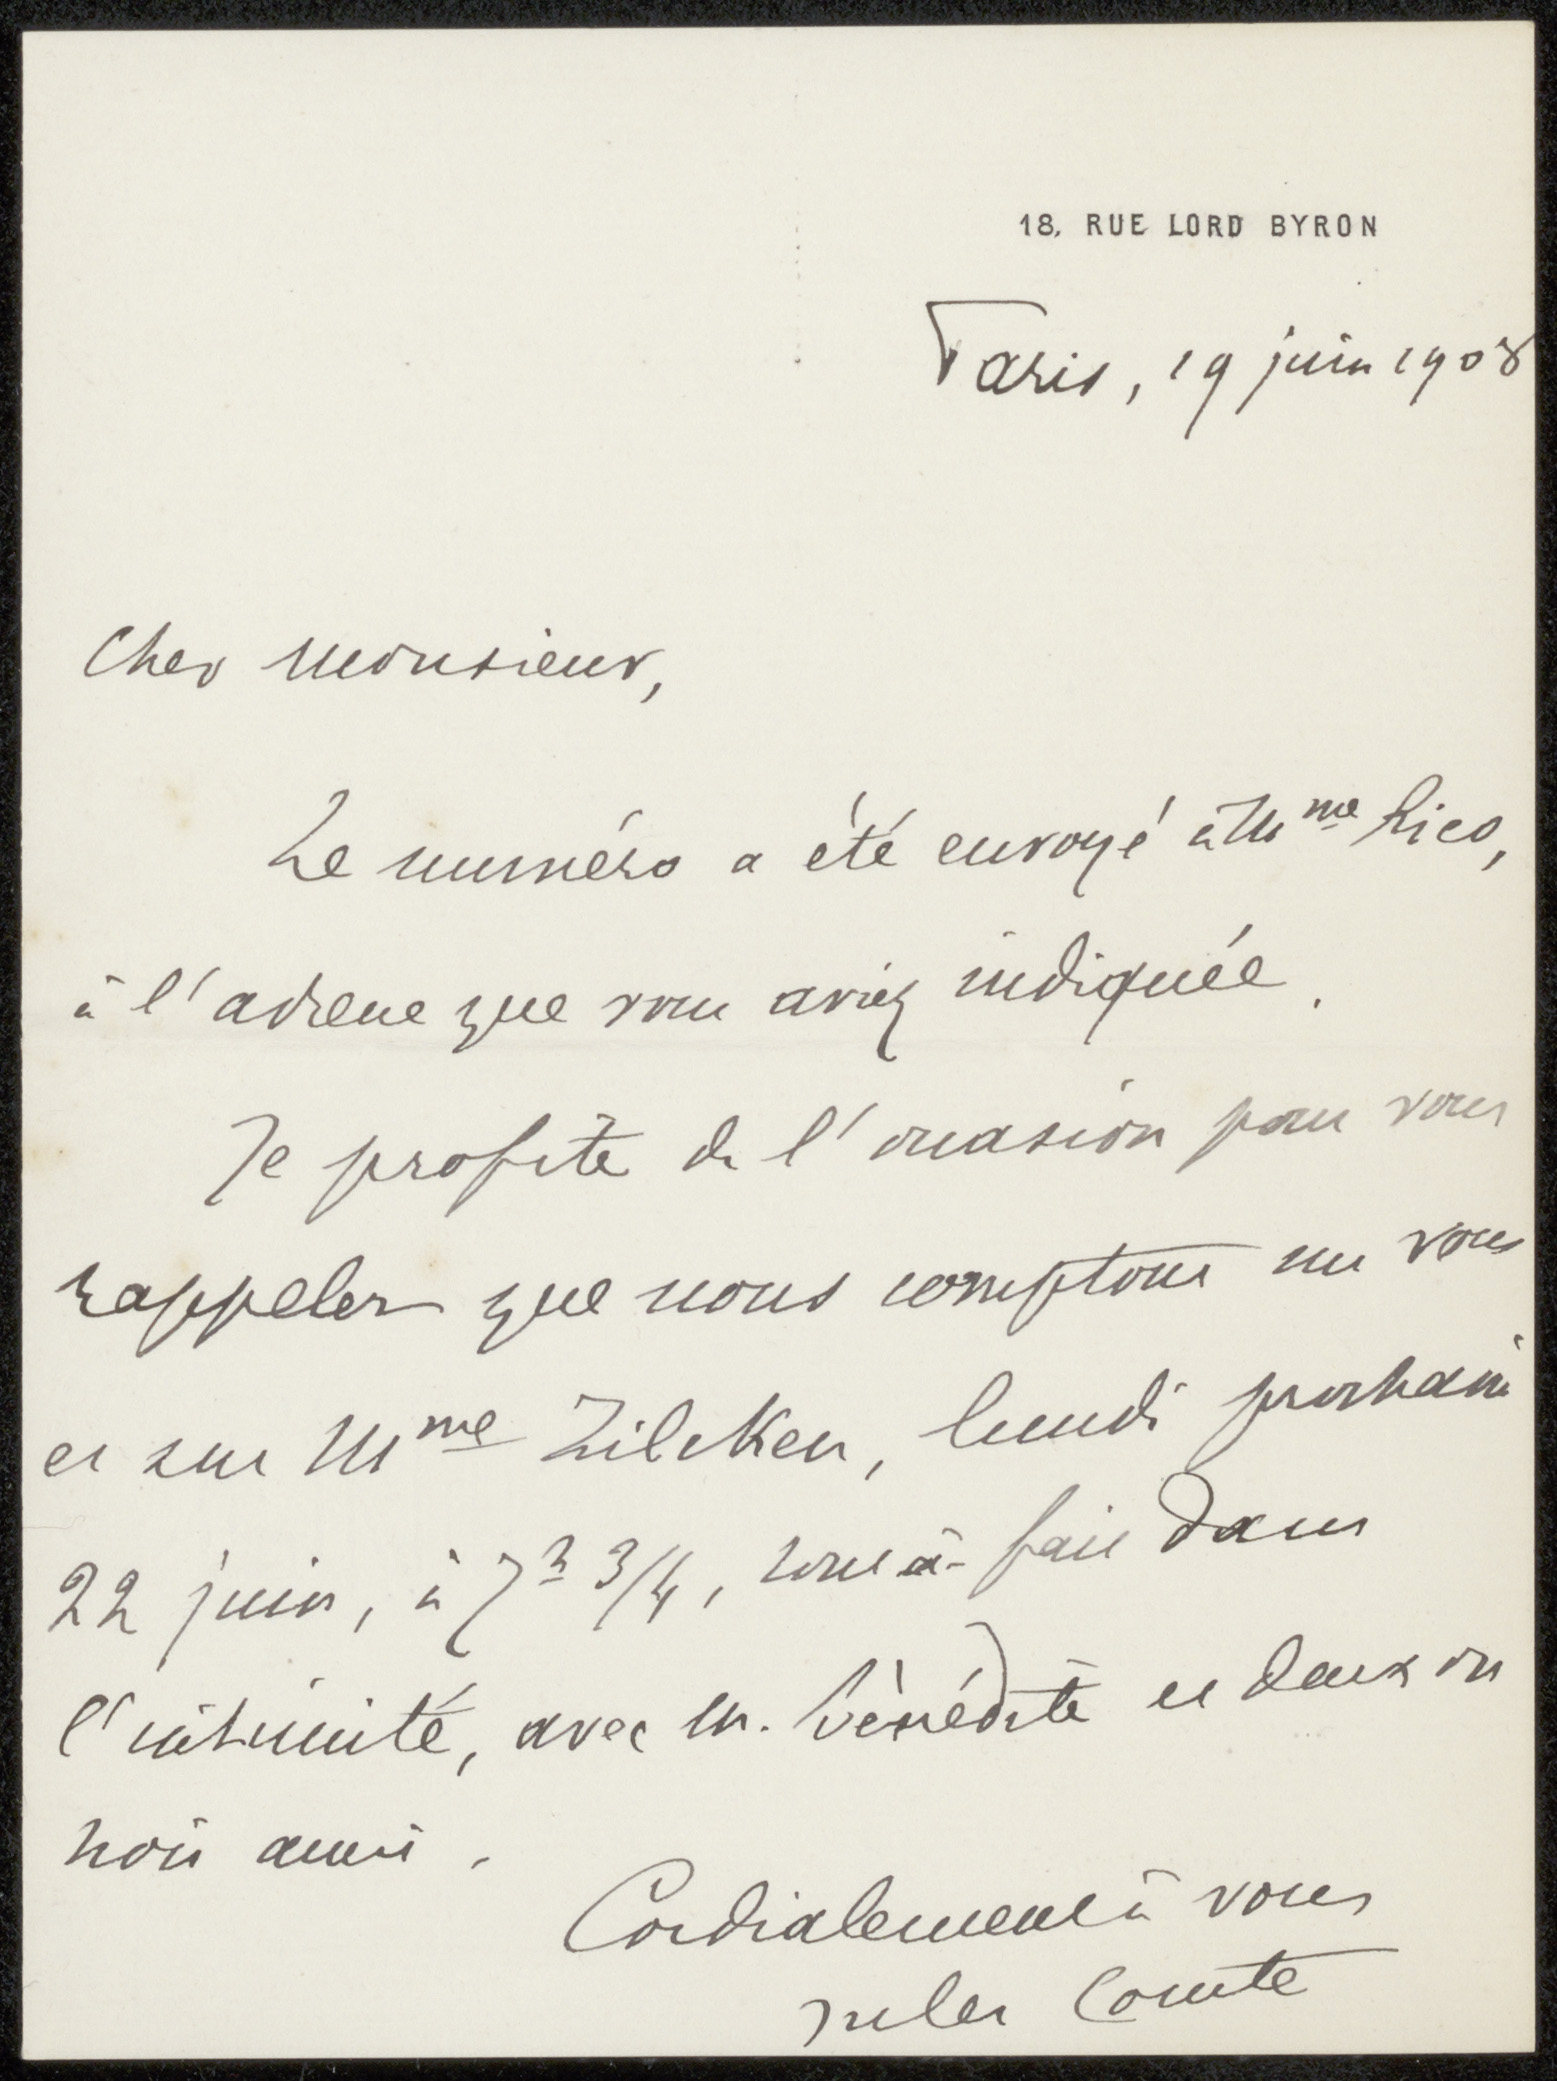 18, RUE LORD BYRON
Paris, 19 juin 1908
Cher Monsieur,
Le numéro a été envoyé à Mme Rico,
à l'adresse que vous aviez indiquée.
Je profite de l'occasion pour vous
rappeler que nous comptons sur vous
et sur Mme Zilcken, lundi prochain
22 juin, à 7h 3/4, tout-à-fait dans
l'intimité, avec M. Bénédite et deux ou
trois amis.
Cordialement à vous
Jules Comte